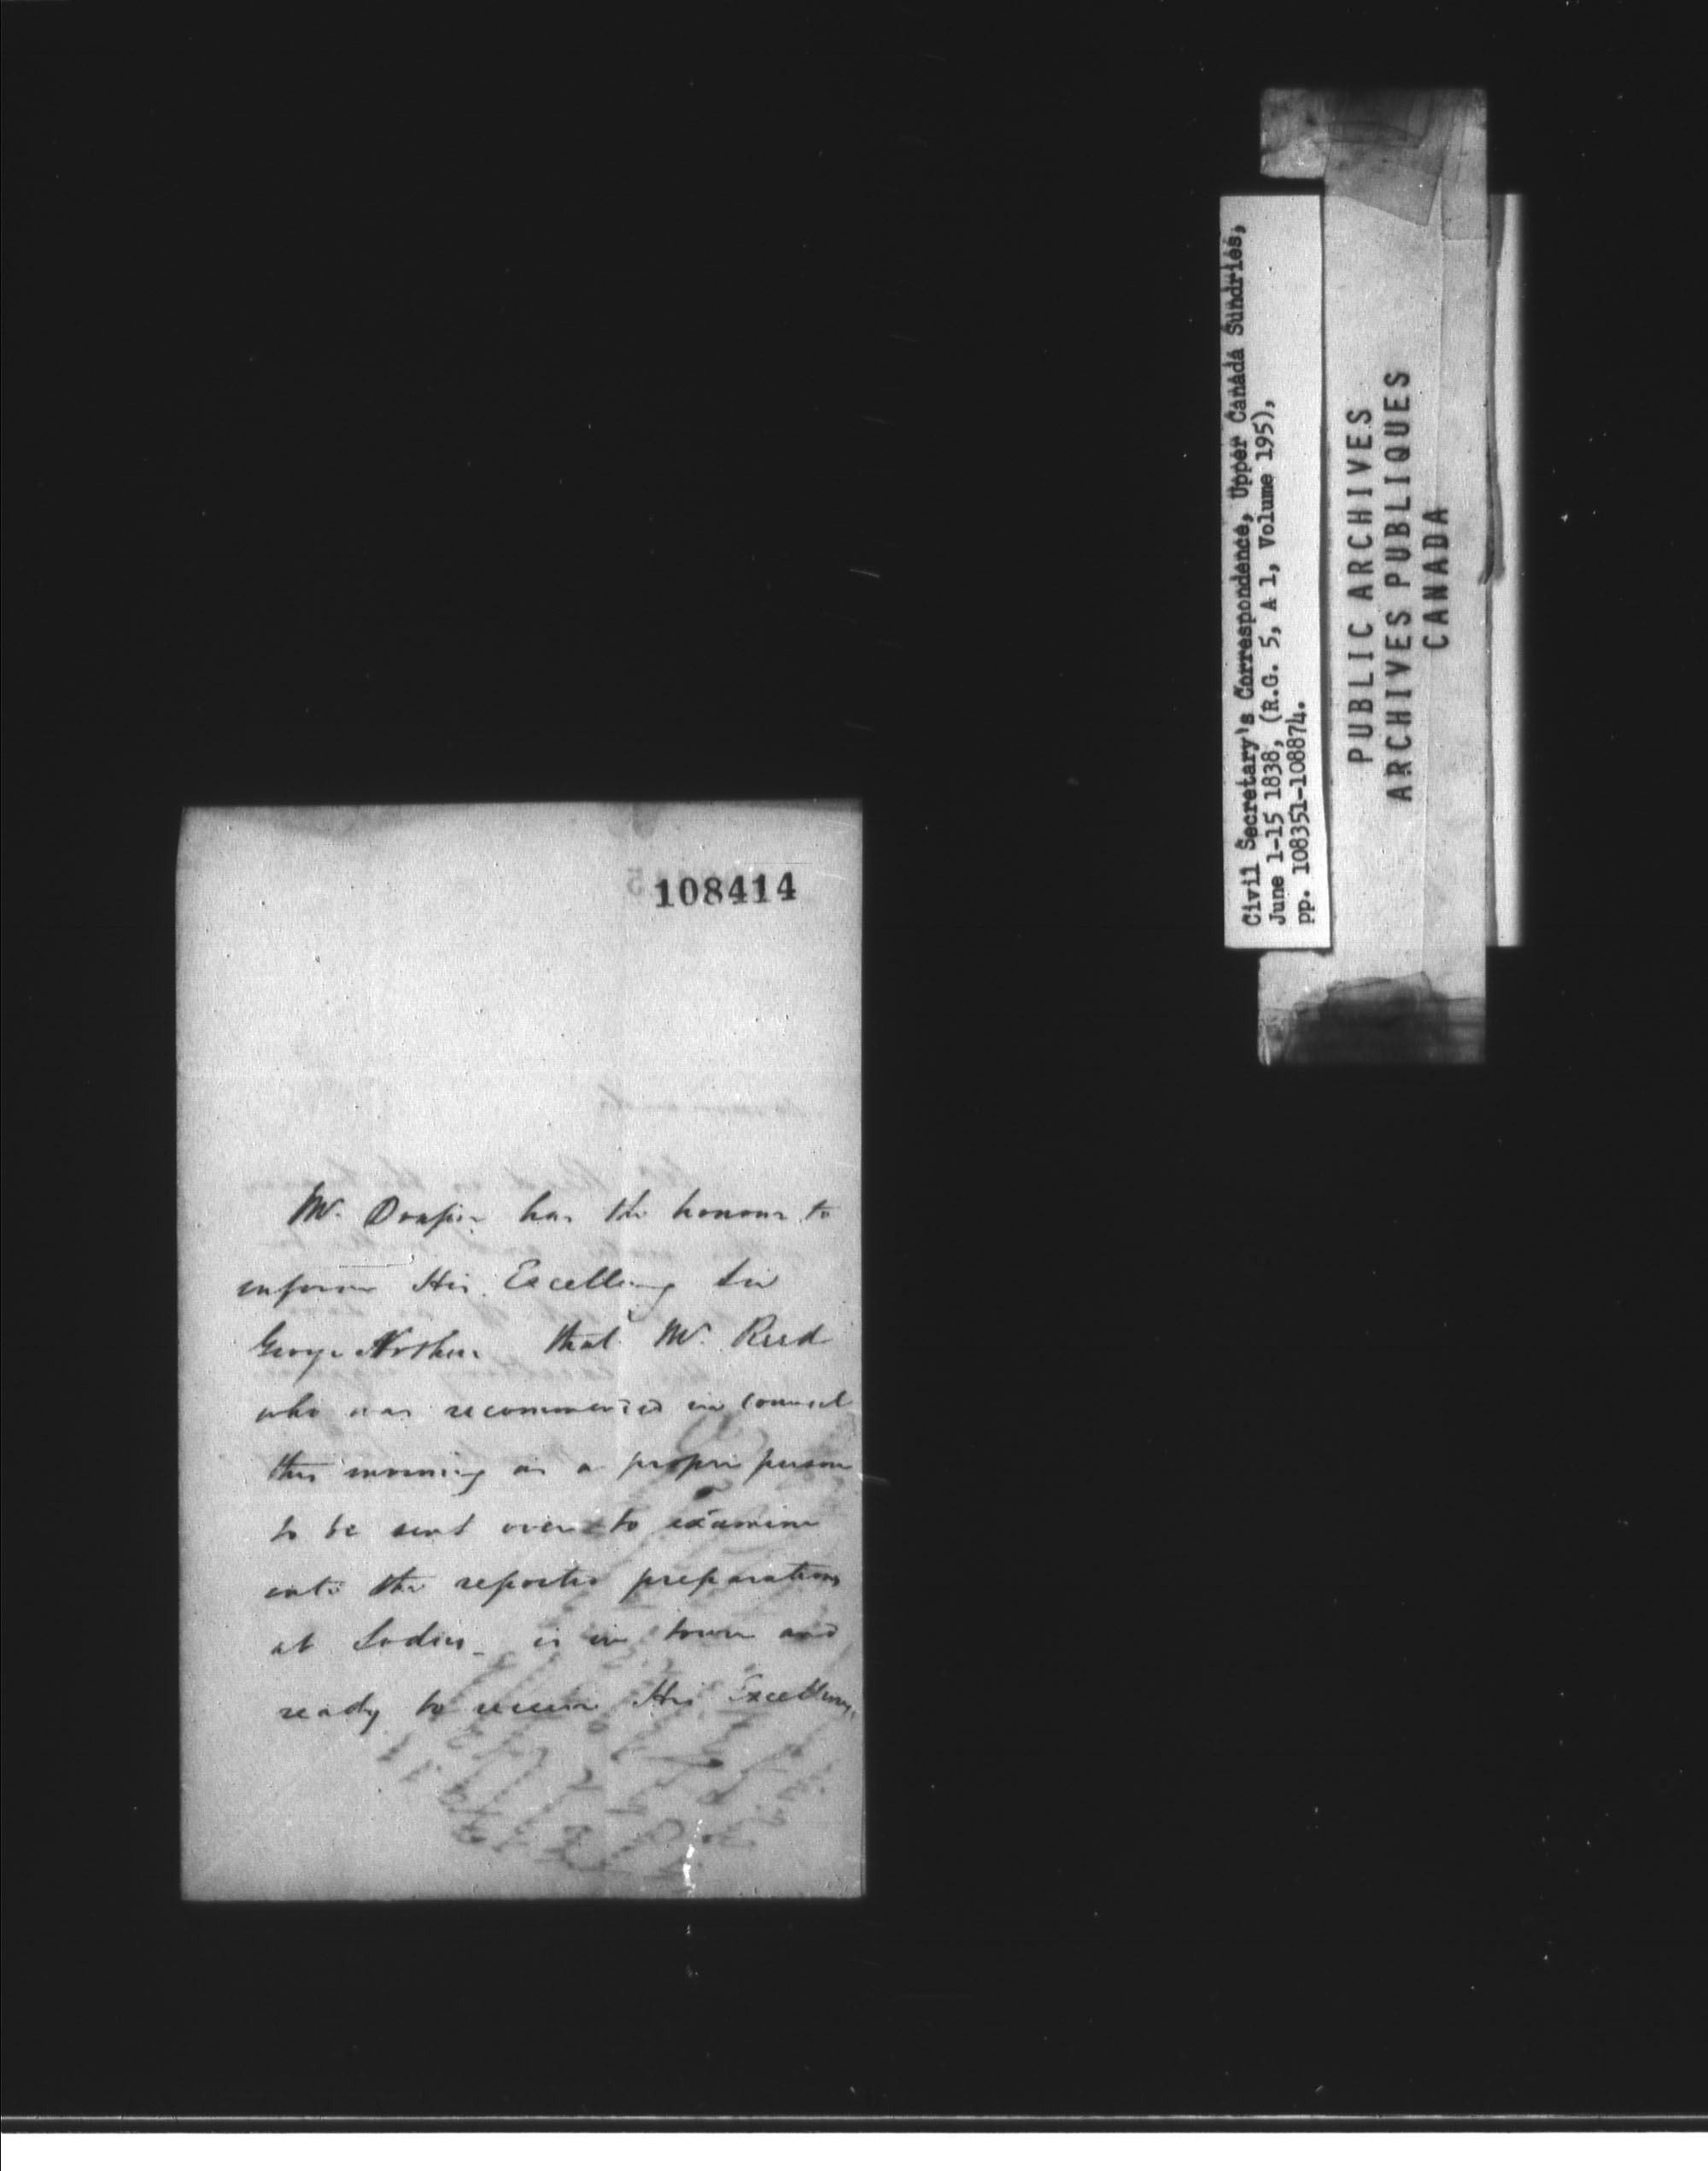 108414
Mr. Draper has the honour to
inform His Excellency Sir
George Arthur that Mr. Reed
who was recommended in council
this morning as a proper person
to be sent over to examine
into the reported preparations
at Lodis is in town and
ready to receive His Excellency's
Civil Secretary's Correspondence, Upper Canada Sundries,
June 1-15 1838, (R.G. 5, A 1, Volume 195),
pp. 108351-108874.
PUBLIC ARCHIVES
ARCHIVES PUBLIQUES
CANADA